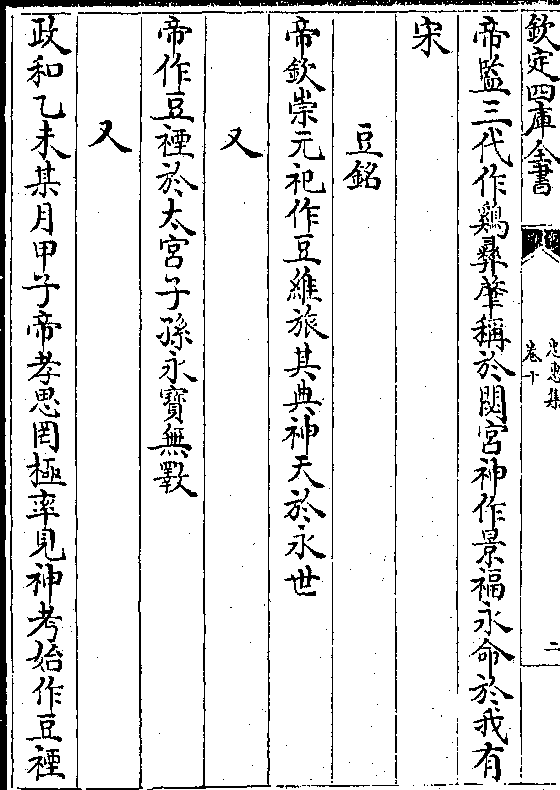 欽定四庫全書
忠惠集
卷十
二
帝監三代作鷄彛肇稱於閟宮神作景福永命於我有
宋
豆銘
帝欽崇元祀作豆維旅其典神天於永世
又
帝作豆禋於太宮子孫永寶無斁
又
政和乙未某月甲子帝孝思罔極率見神考始作豆禋